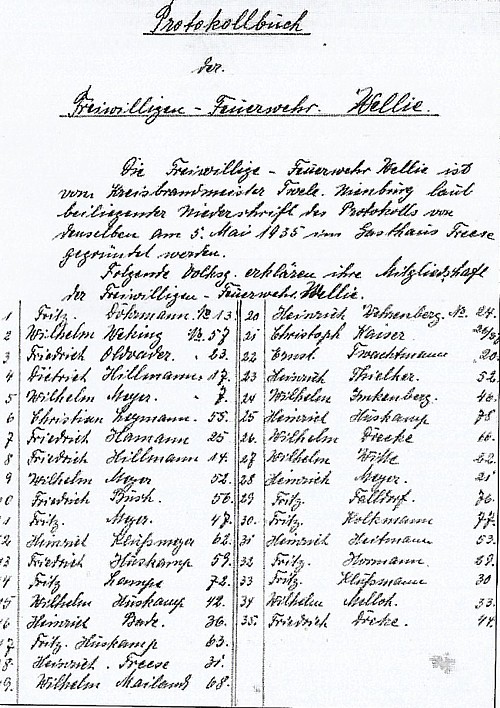 Protokollbuch
der.
Freiwilligen - Feuerwehr. Wellie.
Die Freiwillige - Feuerwehr Wellie ist
vom Kreisbrandmeister Twele. Nienburg laut
beiliegender Niederschrift des Protokolls von
denselben am 5. Mai 1935 im Gasthaus Freese
gegründet worden.
Folgende Volksg. erklären ihre Mitgliedschaft
der Freiwilligen - Feuerwehr. Wellie.
1 Fritz. Dohrmann. No 13.
2 Wilhelm Weking No. 57
3 Friedrich 23.
4 Dietrich Hillmann. 17.
5 Wilhelm Meyer. 7.
6 Christian Heymann. 55.
7 Friedrich Hamann 25
8 Friedrich Hillmann 14.
9 Wilhelm Meyer 52.
0 Friedrich Büsh. 56.
1 Fritz. Meyer. 47.
2 Heinrich 62.
3 Friedrich Huskamp 59.
4 Fritz Kampe 72.
15 Wilhelm Huskamp 42.
16 Heinrich Bade. 36.
17 Fritz. Huskamp 63.
8. Heinrich. Freese 31.
9. Wilhelm Mailand 68.
20 Heinrich No. 24.
21 Christoph Kaiser
22 Ernst Twachtmann 20.
23 Heinrich Thielker. 52.
24 Wilhelm 46.
25 Heinrich Huskamp 78
26. Wilhelm Dreeke 16.
27 Wilhelm Witte 22.
28 Heinrich Meyer. 21
29 Fritz. Falldorf. 76.
30. Fritz. Kolkmann 77.
31 Heinrich Heitmann 53.
32 Fritz. Hormann. 29.
33 Fritz. 30
34 Wilhelm Melloh. 33.
35. Friedrich Dreke. 44.